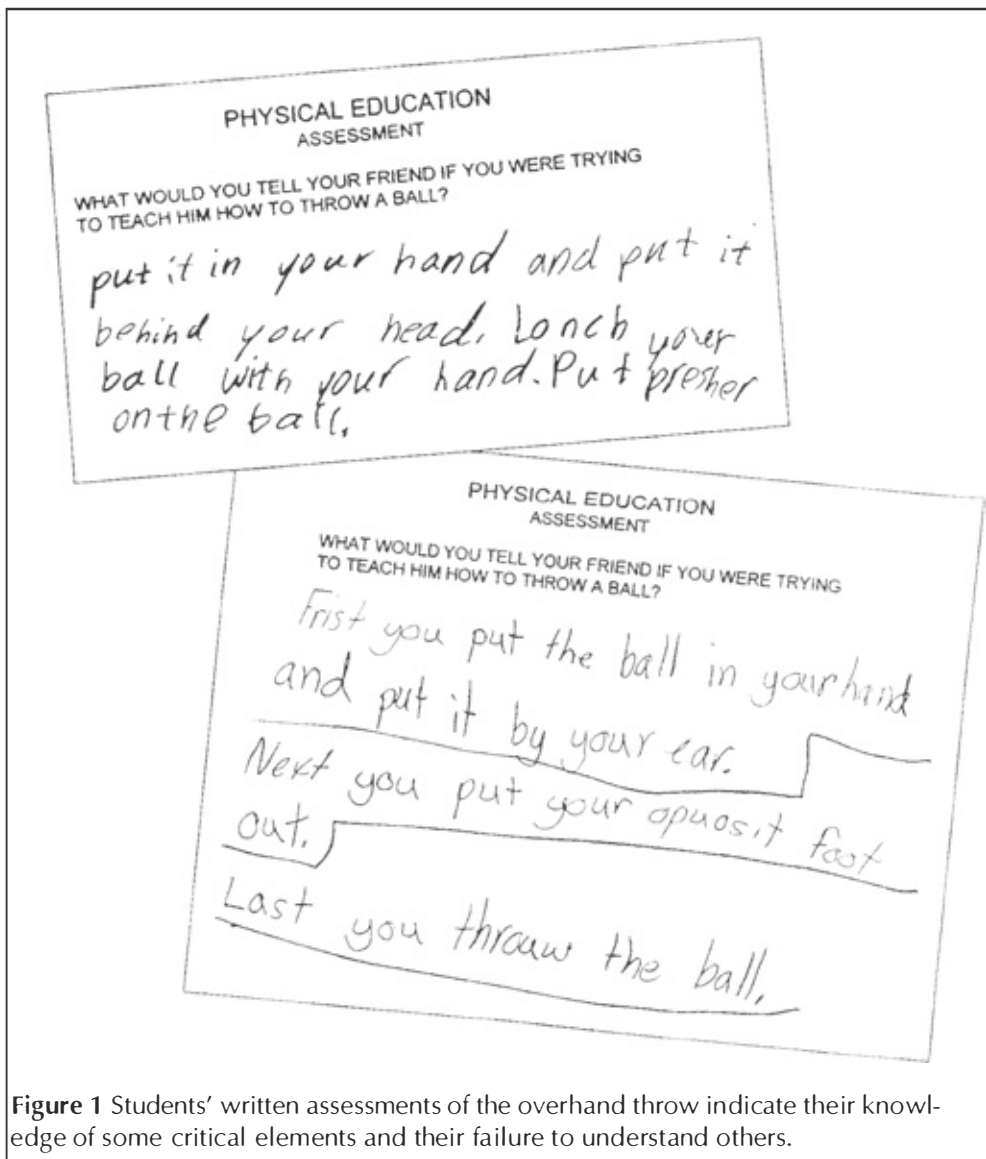 PHYSICAL EDUCATION
ASSESSMENT
WHAT WOULD YOU TELL YOUR FRIEND IF YOU WERE TRYING
TO TEACH HIM HOW TO THROW A BALL?
put it in your hand and put it
behind your head. Lonch your
ball with your hand. Put presher
on the ball.
PHYSICAL EDUCATION
ASSESSMENT
WHAT WOULD YOU TELL YOUR FRIEND IF YOU WERE TRYING
TO TEACH HIM HOW TO THROW A BALL?
Frist you put the ball in your hand
and put it by your ear.
Next you put your opuosit foot
out.
Last you throuw the ball.
Figure 1 Students' written assessments of the overhand throw indicate their knowl-
edge of some critical elements and their failure to understand others.